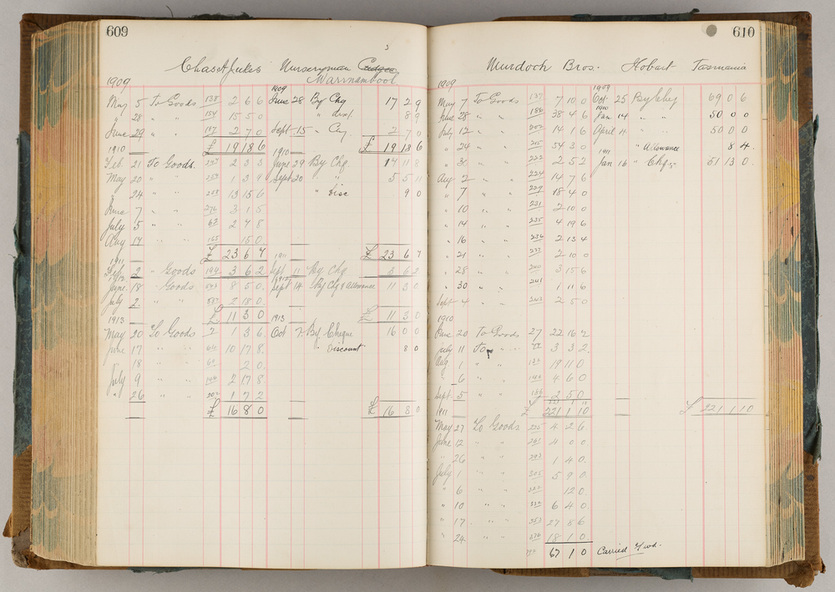 609
Nurseryman
Warrnambool
1909
1909
May 5 To Goods 2 6 6 June 28 By Chq 17 2 9
" 28 " " 15 5 0
June 29 " " 2 7 0 Sept 15 " 2 7 0
1910 £ 19 18 6 1910 £ 19 18 6
Feb 21 To Goods 2 3 3 June 29 By Chq
May 20 " " 1 3 9 Sept 20 " "
" 24 " " 13 15 6 " Disc 9 0
June 7 " " 3 1 5
July 5 " " 2 4 8
Aug 14 " " 15 0
1911 £ 23 6 7 1911 £ 23 6 7
Sept 2 " Goods 3 6 2 Sept 11 By Chq 3 6 2
1912
June 18 " Goods 8 5 0 Sept 14 By Chq & Allowance 11 3 0
July 2 " " 2 18 0
1913 £ 11 3 0 1913 £ 11 3 0
May 20 To Goods 1 3 6 Oct 7 By Cheque 16 0 0
June 17 " " 10 17 8 " Discount 8 0
" 18 " " 2 0
July 9 " " 2 17 8
" 26 " " 1 7 2
£ 16 8 0 £ 16 8 0
610
Murdoch Bros. Hobart Tasmania
1909
1909
May 7 To Goods 7 10 0 Oct 25 By Chq 69 0 6
June 28 " " 38 4 6 Jan 14 " " 50 0 0
July 12 " " 14 1 6 April 11 " 50 0 0
" 24 " " 54 3 0 1911 " Allowance 8 4
" 30 " " 2 5 2 Jan 16 " Chq 51 13 0
Aug 2 " " 14 7 6
" 7 " " 18 4 0
" 10 " " 2 10 0
" 14 " " 4 19 6
" 16 " " 2 13 4
" 21 " " 2 10 0
" 28 " " 3 15 6
" 30 " " 1 11 6
Sept 4 " " 2 5 0
1910
June 20 To Goods 27 22 16 2
July 11 To 3 3 2
Aug 1 " " 19 11 0
" 6 " " 4 6 0
Sept 5 " " 2 5 0
1911 £ 221 1 10 £ 221 1 10
May 27 To Goods 4 2 6
June 12 " " 4 0 0
" 26 " " 1 4 0
July 1 " " 5 9 0
" 6 " " 12 0
" 10 " " 6 4 0
" 17 " " 27 8 6
" 24 " " 18 1 0
67 1 0 Carried Fwd.